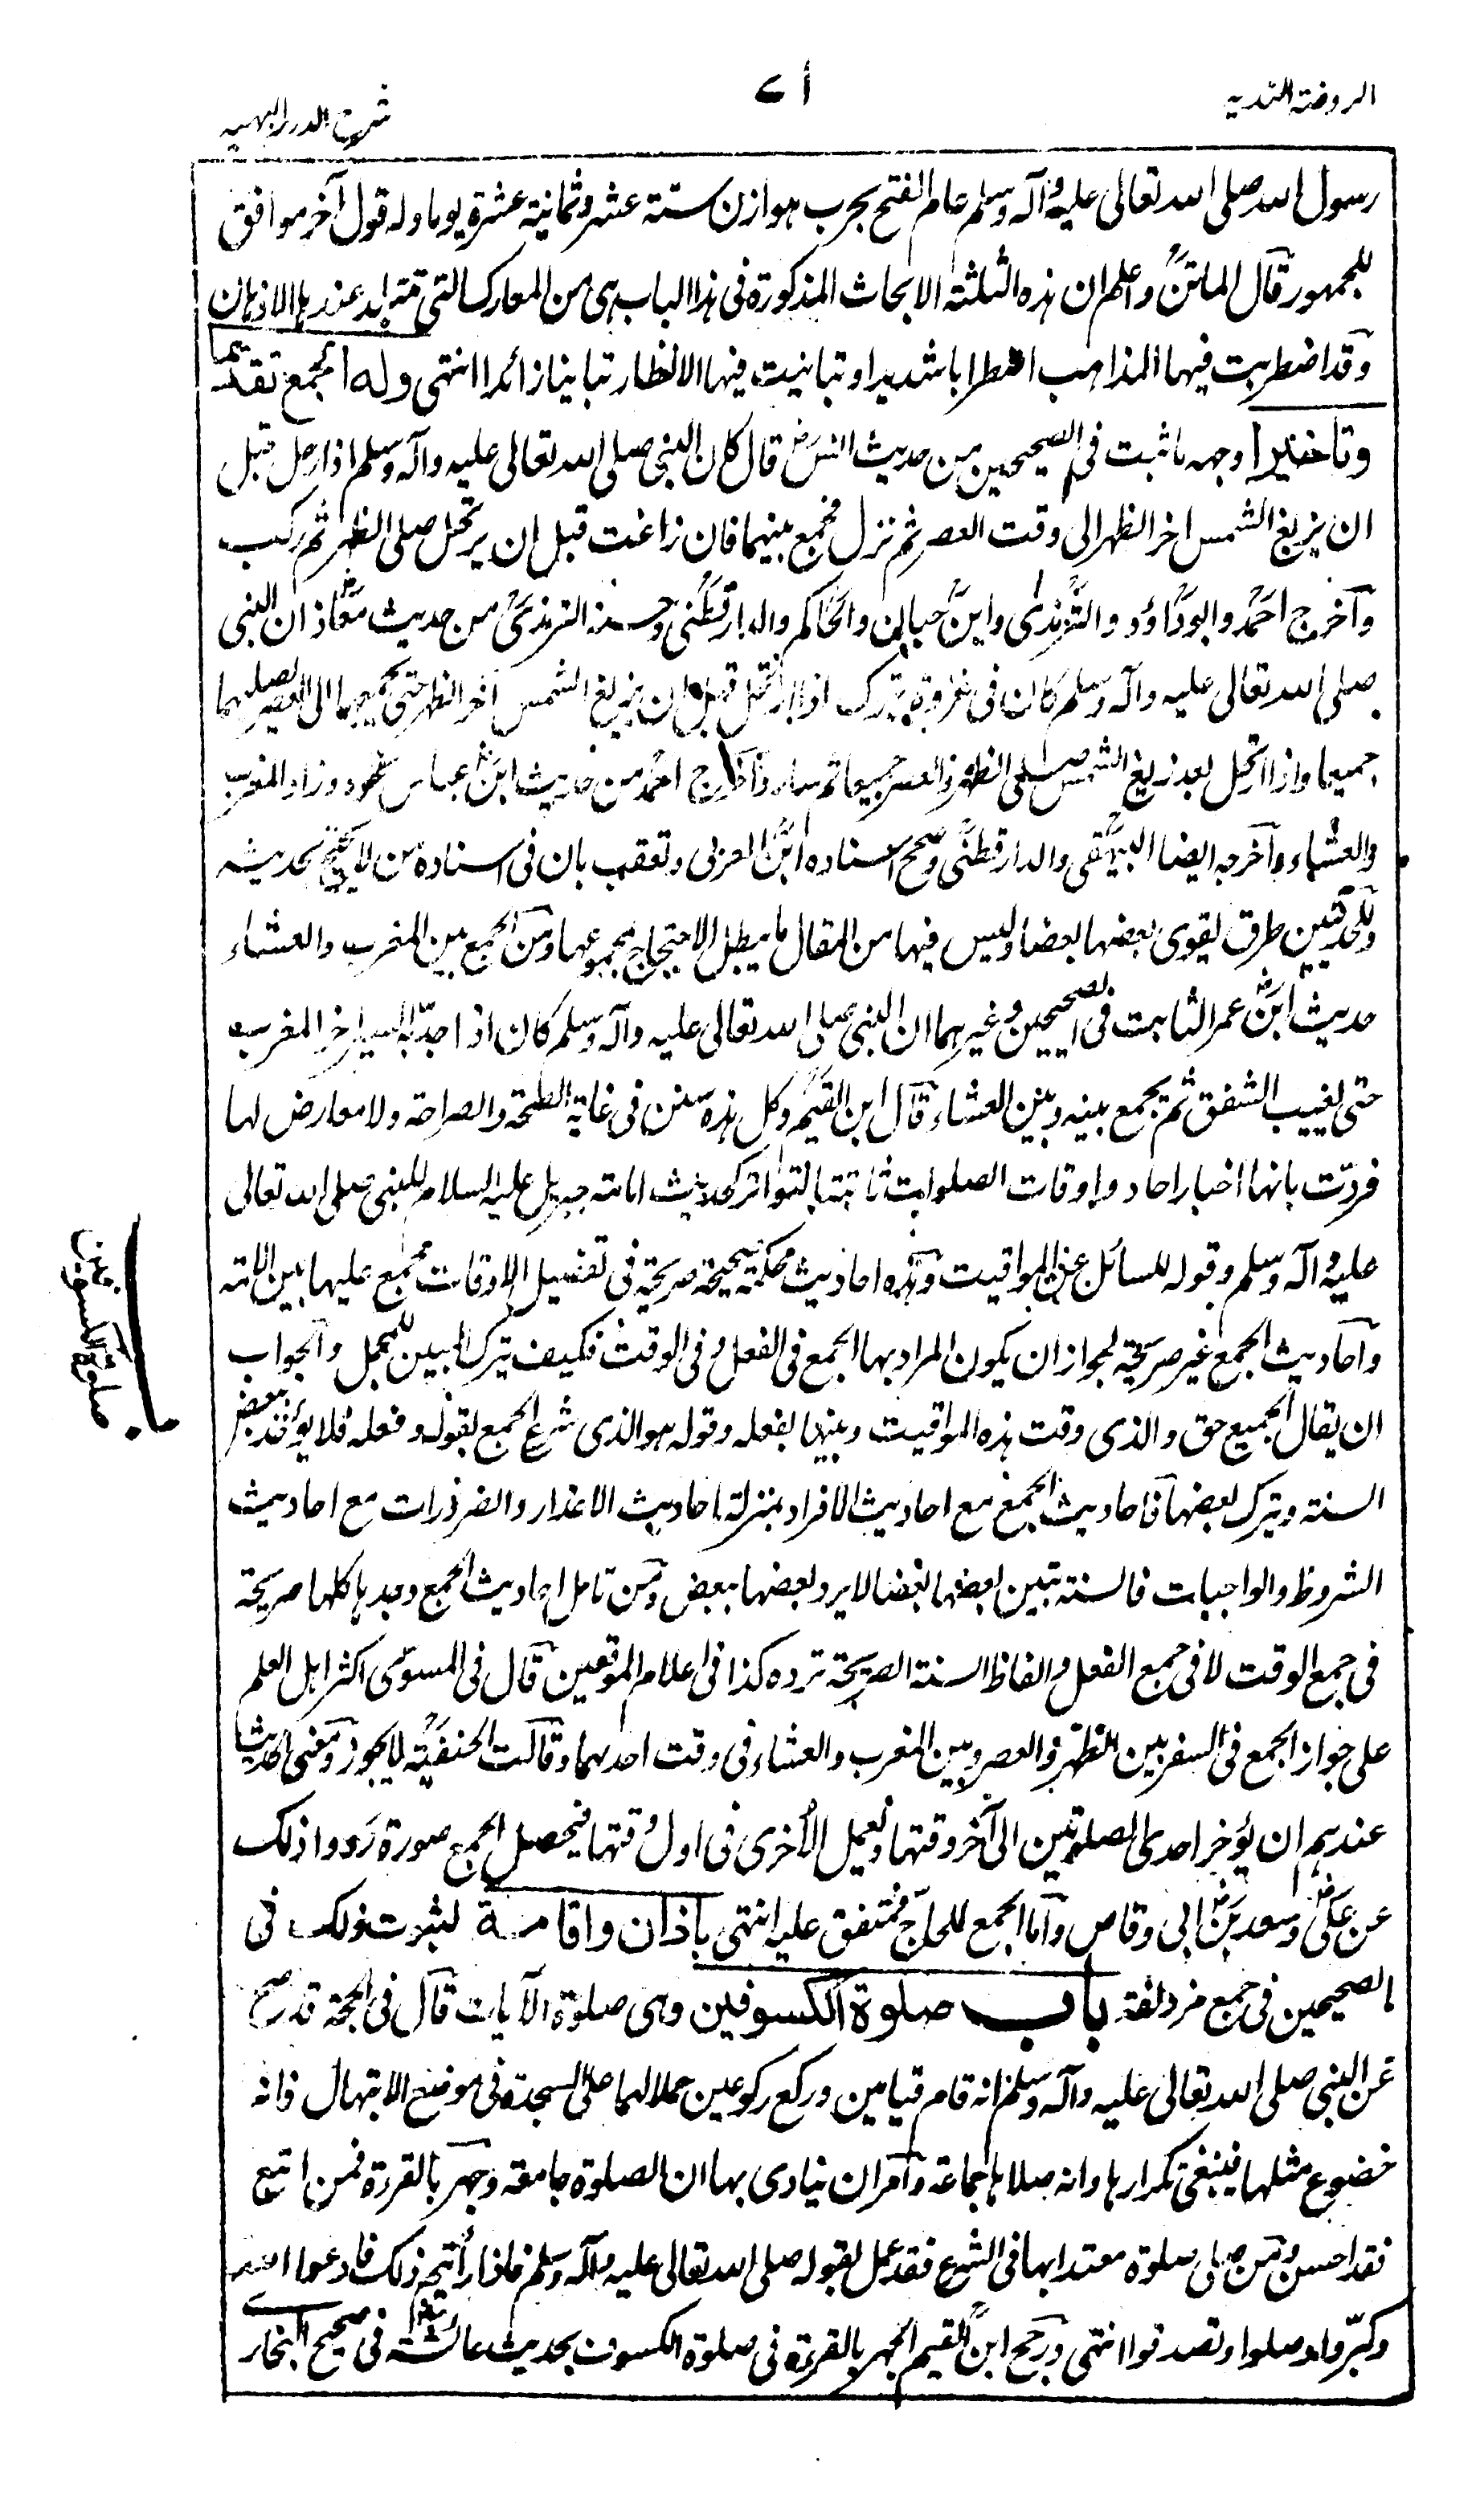 الروضة الندية
٧١
شرح الدرر البهية
رسول الله صلى الله تعالى عليه وآله وسلم عام الفتح بحرب هوازن ستة عشر وثمانية عشرة يوما وله قول آخر موافق
للجمهور قال الماتن واعلم ان هذه الثلثة الابحاث المذكورة فى هذا الباب هى من المعارك التى تتبلد عندها الاذهان
وقد اضطربت فيها المذاهب اضطرابا شديدا وتباينت فيها الانظار تباينا زائدا انتهى وله الجمع تقديما
وتاخيرا وجهه ما ثبت فى الصحيحين من حديث انس رض قال كان النبى صلى الله تعالى عليه وآله وسلم اذا رحل قبل
ان يزيغ الشمس اخر الظهر الى وقت العصر ثم نزل فجمع بينهما فان زاغت قبل ان يرتحل صلى الظهر ثم ركب
وأخرج احمد وابوداؤد والترمذى وابن حبان والحاكم والدارقطنى وحسنه الترمذى من حديث معاذ ان النبى
صلى الله تعالى عليه وآله وسلم كان فى غزوة تبوك اذا ارتحل قبل ان يزيغ الشمس اخر الظهر حتى يجمعها الى العصر يصليهما
جميعا واذا ارتحل بعد زيغ الشمس صلى الظهر والعصر جميعا ثم سار وأخرج احمد من حديث ابن عباس نحوه وزاد المغرب
والعشاء وأخرجه ايضا البيهقى والدارقطنى وصحح اسناده ابن العربى وتعقب بان فى اسناده من لا يحتج بحديثه
وللحديثين طرق يقوى بعضها بعضا وليس فيها من المقال ما يبطل الاحتجاج بمجموعها ومن الجمع بين المغرب والعشاء
حديث ابن عمر الثابت فى الصحيحين وغيرهما ان النبى صلى الله تعالى عليه وآله وسلم كان اذا جدّ به السير اخر المغرب
حتى يغيب الشفق ثم يجمع بينه وبين العشاء قال ابن القيم وكل هذه سنن فى غاية الصحة والصراحة ولا معارض لها
فردّت بانها اخبار احاد واوقات الصلوات ثابتة بالتواتر كحديث امامة جبريل عليه السلام للنبى صلى الله تعالى
عليه وآله وسلم وقوله للسائل عن المواقيت وهذه احاديث محكمة صحيحة صريحة فى تفصيل الاوقات مجمع عليها بين الامة
وأحاديث الجمع غير صريحة لجواز ان يكون المراد بها الجمع فى الفعل وفى الوقت فكيف يترك المبين للمجمل والجواب
ان يقال الجميع حق والذى وقت هذه المواقيت وبينها بفعله وقوله هو الذى شرع الجمع بقوله وفعله فلا يؤخذ ببعض
السنة ويترك بعضها فاحاديث الجمع مع احاديث الافراد بمنزلة احاديث الاعذار والضرورات مع احاديث
الشروط والواجبات فالسنة تبين بعضها بعضا لا يرد بعضها ببعض ومن تامل احاديث الجمع وجدها كلها صريحة
فى جمع الوقت لا فى جمع الفعل والفاظ السنة الصريحة ترده كذا فى اعلام الموقعين قال فى المسوّى اكثر اهل العلم
على جواز الجمع فى السفر بين الظهر والعصر وبين المغرب والعشاء فى وقت احدهما وقالت الحنفية لا يجوز ومعنى الحديث
عندهم ان يؤخر احدى الصلوتين الى آخر وقتها ويعجل الأخرى فى اول وقتها فيحصل الجمع صورة رووا ذلك
عن على وسعد بن ابى وقاص وأما الجمع للحاجّ فمتفق عليه انتهى باذان واقامة لثبوت ذلك فى
الصحيحين فى جمع مزدلفة باب صلوة الكسوفين وهى صلوة الآيات قال فى الحجة قد صح
عن النبى صلى الله تعالى عليه وآله وسلم انه قام قيامين وركع ركوعين حملا لهما على السجدة فى موضع الابتهال فانه
خضوع مثلها فينبغى تكرارها وانه صلاها جماعة وأمر ان ينادى بها ان الصلوة جامعة وجهر بالقراءة فمن اتبع
فقد احسن ومن صلى صلوة معتدا بها فى الشرع فقد عمل بقوله صلى الله تعالى عليه وآله وسلم فاذا رأيتم ذلك فادعوا الله
وكبّروا وصلوا وتصدقوا انتهى ورجح ابن القيم الجهر بالقراءة فى صلوة الكسوف بحديث عائشة فى صحيح البخار
صلوة الكسوفين